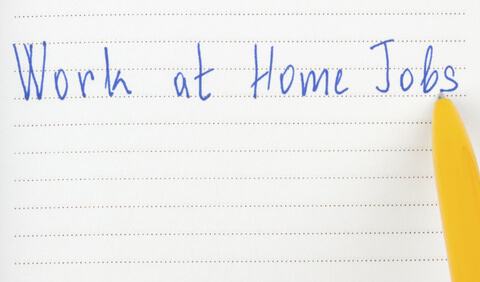 Work at Home Jobs